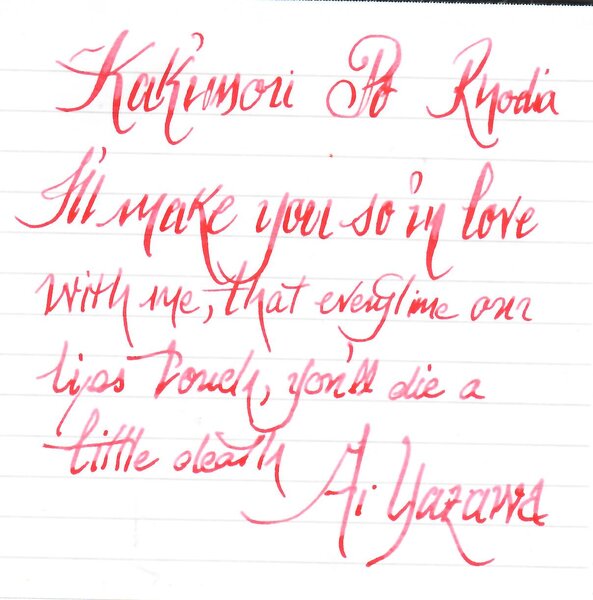 Kakimori Po Rhodia
I'll make you so in love
with me, that everytime our
lips touch, you'll die a
little death
Ai Yazawa